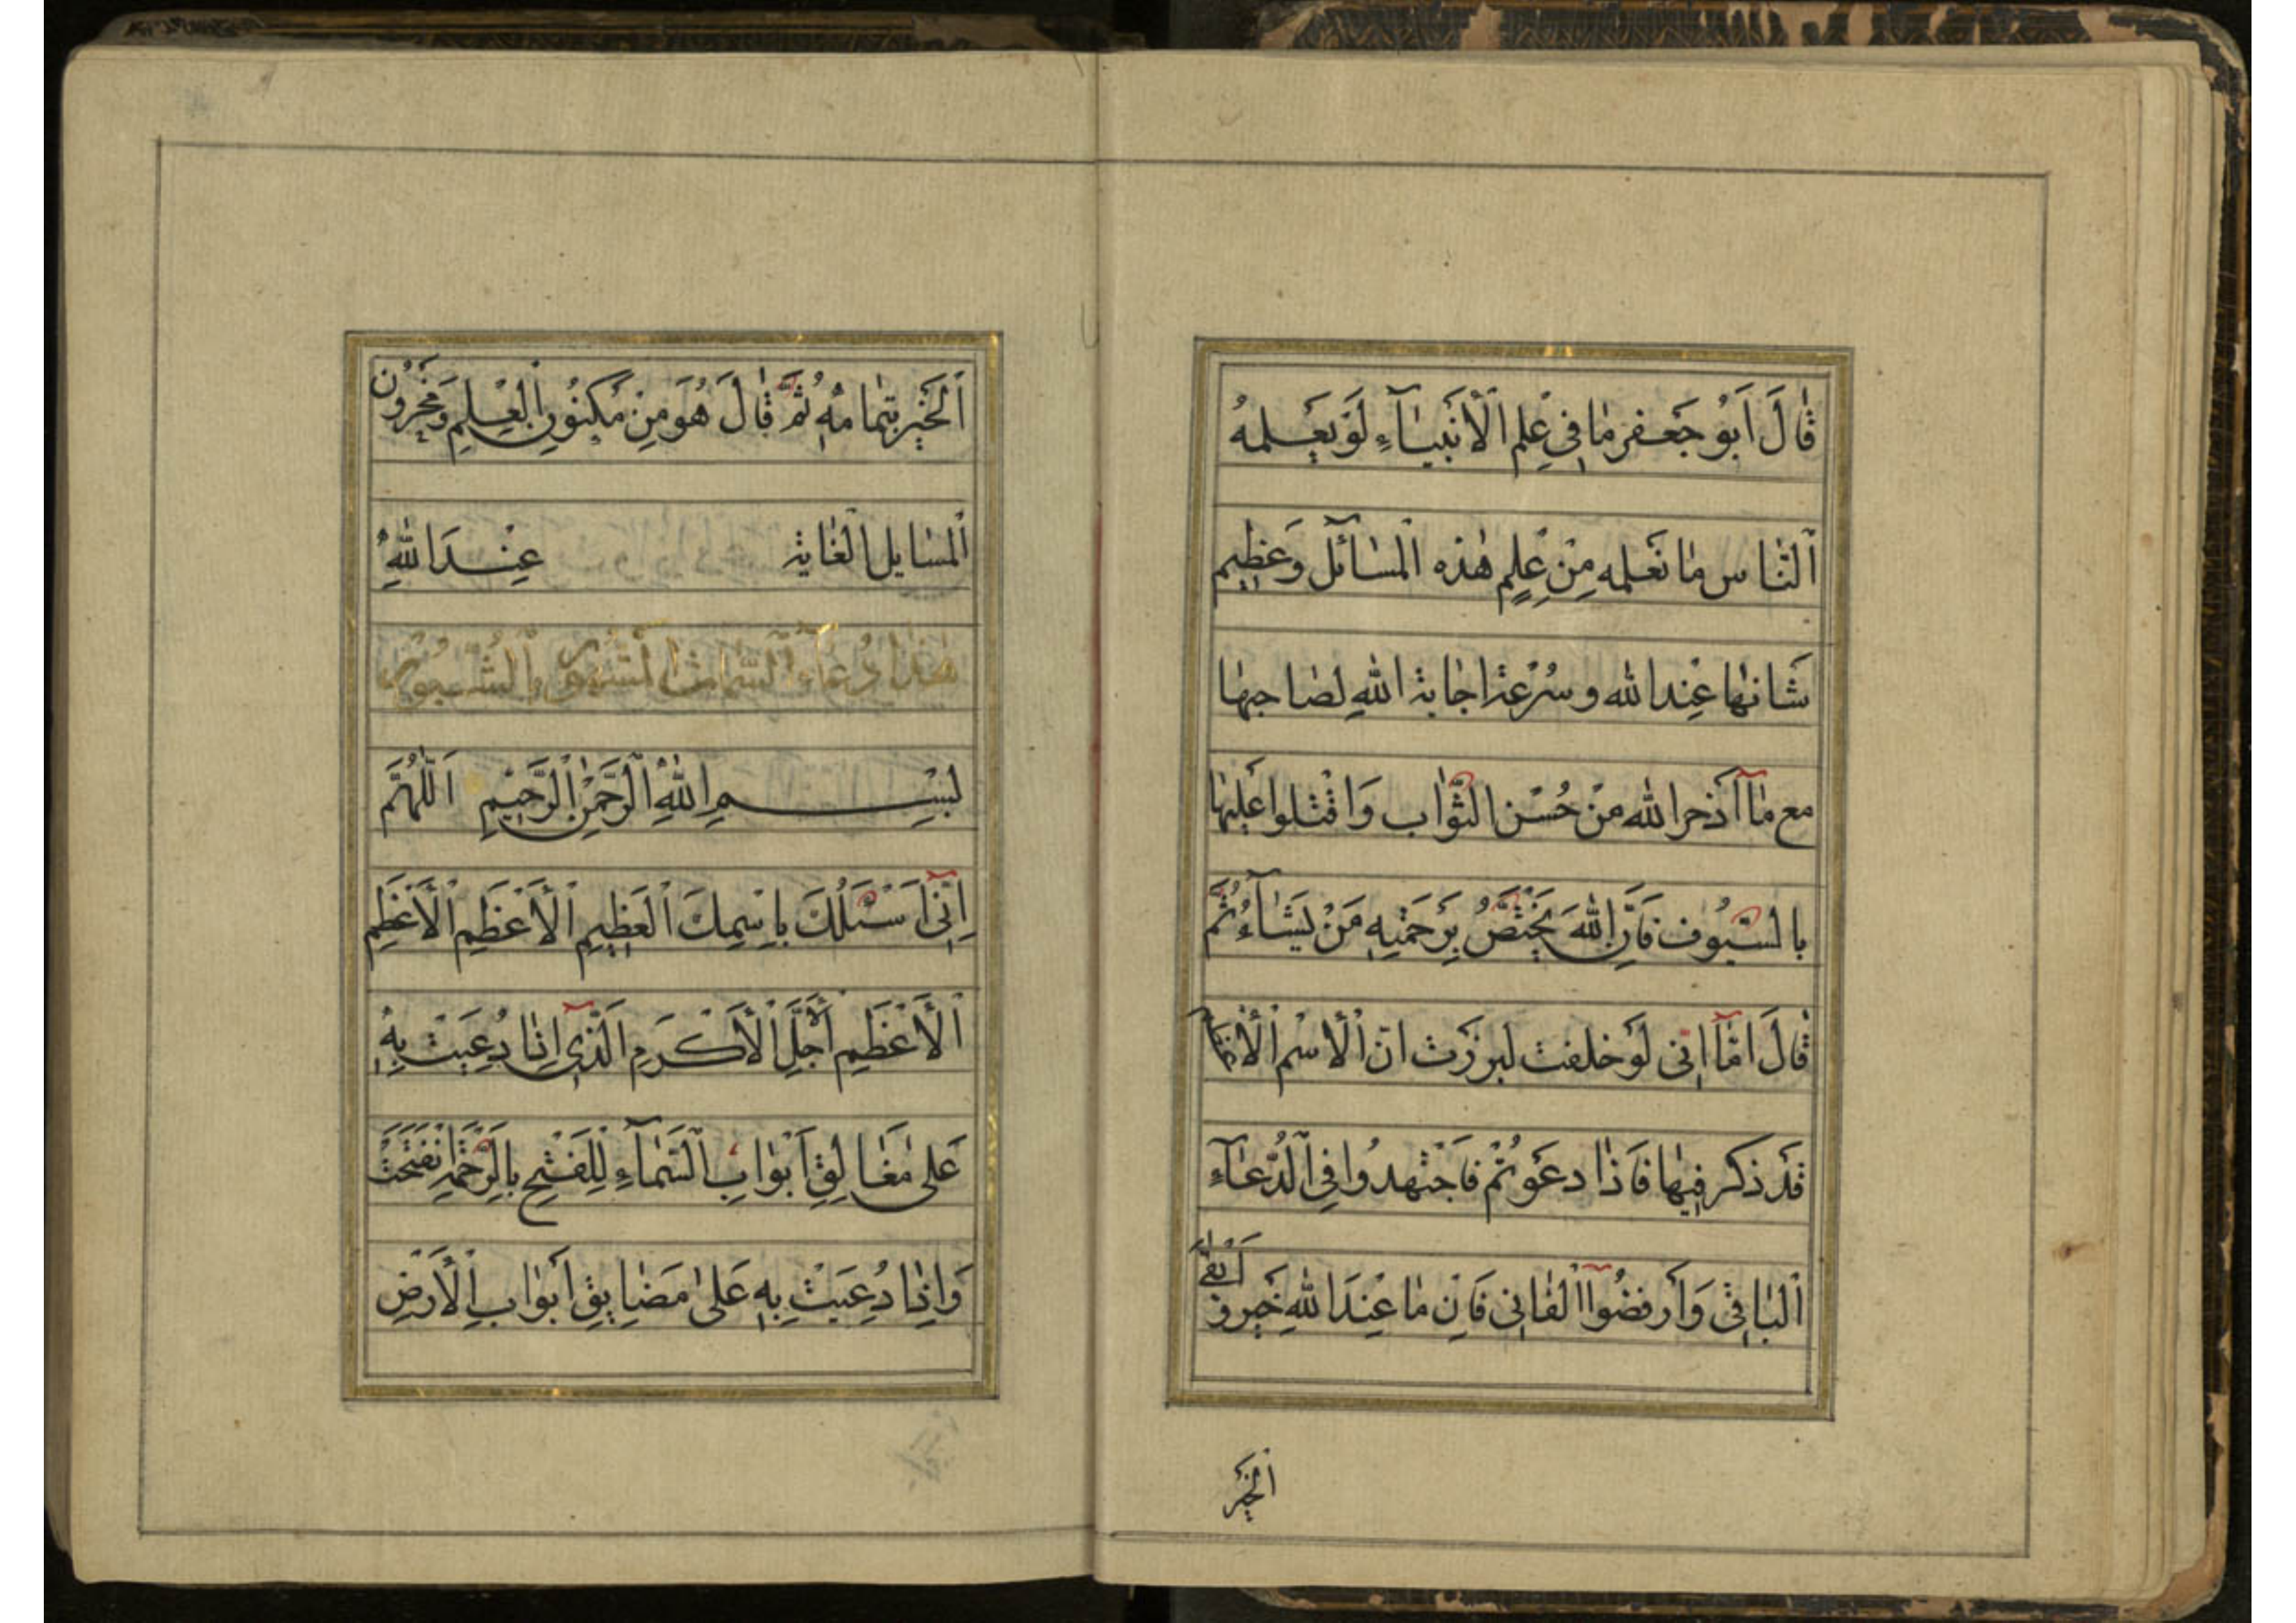 قٰالَ اَبُو جَعْفر مٰا فِي عِلْمِ الْاَنْبِيٰآءِ لَوْ يَعْلمهُ
اَلنّٰاس مٰا نَعْلمه مِنْ عِلِمِ هٰذه الْمَسٰائل وَعَظِيم
شَانهٰا عِنْد الله و سُرْعَة اجٰابة اللهِ لصٰاحبهٰا
مع مٰا آذخر الله منْ حُسْن الثَّوٰاب وَاقْتلوا عَليْهٰا
بالسّيُوف فَاِنَّ اللهَ يَخْتَصُّ بِرَحْمَتِهِ مَنْ يَشٰآءُ ثُمَّ
قٰالَ امّٰا اِنّى لَوْ خلفت لبرزَرْت انّ الْاسْم الْاعْظم
قَدْ ذكر فِيهٰا فَاذٰا دعَوْتُمْ فَاجْتهدُوا فِي الدُّعٰآءِ
اَلْبٰاقِي وَارْفضُوا الْفٰانِي فَاِن مٰا عِنْدَ اللهِ خَيْر وَ اَبْقٰى
اَلْخَبَر
اَلْخَبَر بتمٰامهِ ثُمَّ قٰالَ هُوَ مِنْ مَكْنُونِ الْعِلْمِ وَ مَخْزُونِ
الْمسٰايل الْغٰاية عِنْدَ اللهِ
هٰذٰا دُعٰاء السّمٰات المشهور بالشّبور
بِسْمِ اللهِ الرَّحْمٰنِ الرَّحِيْمِ اَللّٰهُمَّ
اِنّى اَسْئَلُكَ بِاسْمِكَ الْعَظِيمِ الْاَعْظَمِ الْاَعْظَمِ
الْاَعْظَمِ الْاَجَلِّ الْاَكْرَمِ الَّذِي اِذٰا دُعِيتَ بِهِ
عَلىٰ مَغٰالِقِ اَبْوٰابِ السَّمٰآءِ لِلْفَتْحِ بِالرَّحْمَةِ انْفَتَحَتْ
وَاِذٰا دُعِيتَ بِهِ عَلىٰ مَضٰايِقِ اَبْوٰابِ الْاَرْضِ